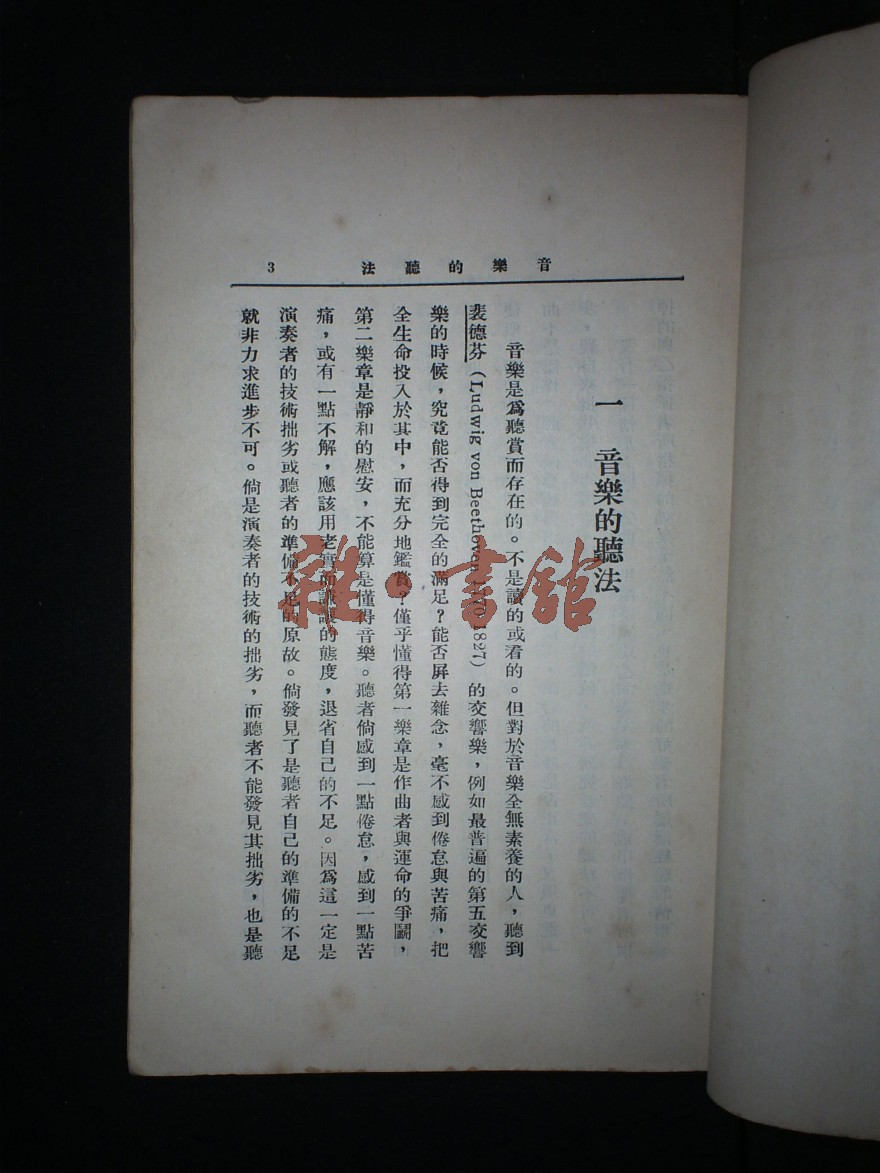 音樂的聽法 3
一 音樂的聽法
音樂是爲聽賞而存在的。不是讀的或看的。但對於音樂全無素養的人，聽到
裴德芬（Ludwig von Beethoven 1770-1827）的交響樂，例如最普遍的第五交響
樂的時候，究竟能否得到完全的滿足？能否屏去雜念，毫不感到倦怠與苦痛，把
全生命投入於其中，而充分地鑑賞？僅乎懂得第一樂章是作曲者與運命的爭鬭，
第二樂章是靜和的慰安，不能算是懂得音樂。聽者倘感到一點倦怠，感到一點苦
痛，或有一點不解，應該用老實而謙讓的態度，退省自己的不足。因爲這一定是
演奏者的技術拙劣或聽者的準備不足的原故。倘發見了是聽者自己的準備的不足
就非力求進步不可。倘是演奏者的技術的拙劣，而聽者不能發見其拙劣，也是聽
雜·書館